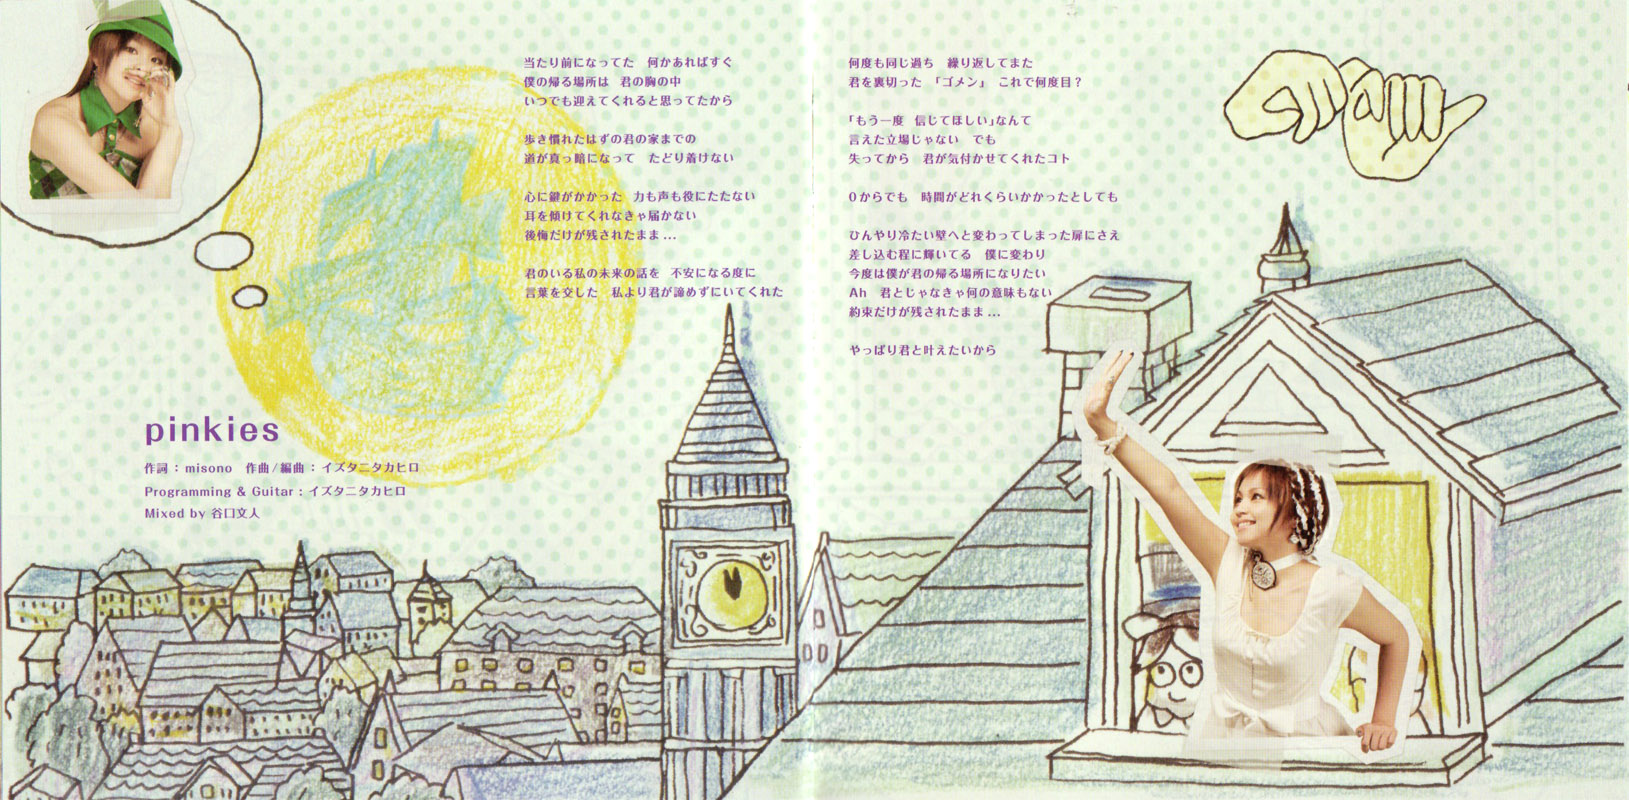 当たり前になってた　何かあればすぐ
僕の帰る場所は　君の胸の中
いつでも迎えてくれると思ってたから
歩き慣れたはずの君の家までの
道が真っ暗になって　たどり着けない
心に鍵がかかった　力も声も役にたたない
耳を傾けてくれなきゃ届かない
後悔だけが残されたまま...
君のいる私の未来の話を　不安になる度に
言葉を交した　私より君が諦めずにいてくれた
pinkies
作詞：misono　作曲/編曲：イズタニタカヒロ
Programming & Guitar：イズタニタカヒロ
Mixed by 谷口文人
何度も同じ過ち　繰り返してまた
君を裏切った　「ゴメン」　これで何度目？
「もう一度　信じてほしい」なんて
言えた立場じゃない　でも
失ってから　君が気付かせてくれたコト
0からでも　時間がどれくらいかかったとしても
ひんやり冷たい壁へと変わってしまった扉にさえ
差し込む程に輝いてる　僕に変わり
今度は僕が君の帰る場所になりたい
Ah　君とじゃなきゃ何の意味もない
約束だけが残されたまま...
やっぱり君と叶えたいから